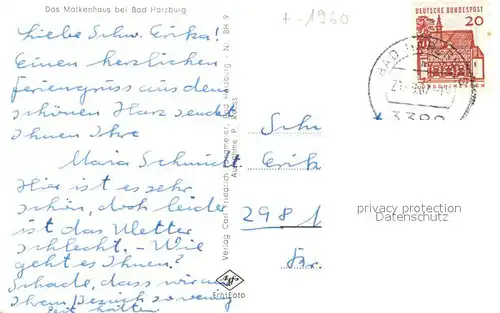 Das Molkenhaus bei Bad Harzburg
+ -1960
Liebe Schw. Erika!
Einen herzlichen
Feriengruss aus dem
schönen Harz sendet
Ihnen Ihre
Maria Schmidt.
Hier ist es sehr
schön, doch leider
ist das Wetter
schlecht. - Wie
geht es Ihnen?
Schade, dass wir zu
Ihrem Besuch so wenig
Zeit hatten
Verlag Carl Friedrich Bad Harzburg - Nr. BH 9
Aufnahme P.
Echt Foto
DEUTSCHE BUNDESPOST
20
BAD
3388
Schw
Erik
2981
privacy protection
Datenschutz